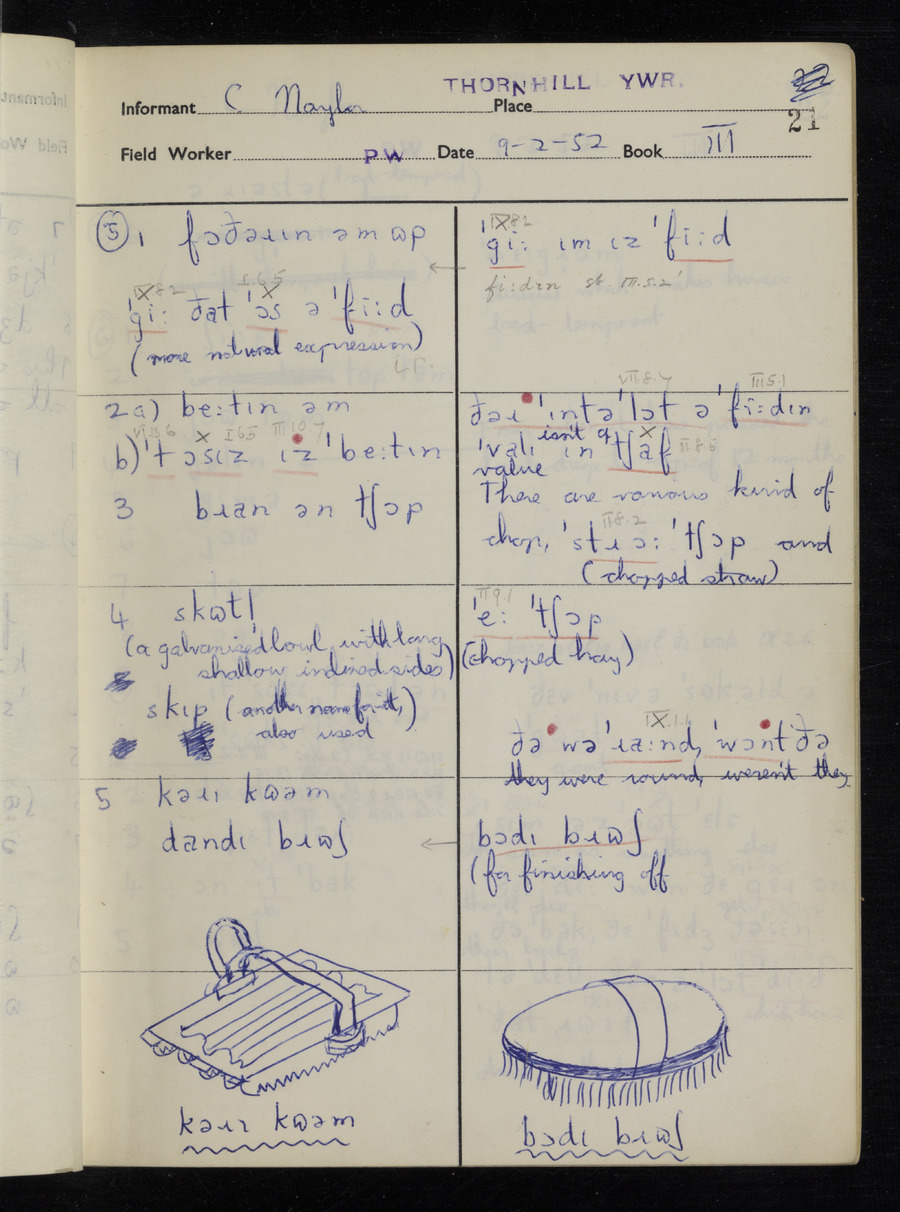 THORNHILL YWR.
Informant C Naylor Place
21
Field Worker PW Date 9-2-52 Book III
⑤ 1 fɔðəɹɪn əm ɷp
IX.8.2 I.6.5
ˈgiː ðat ˈɔs ə ˈfiːd
(more natural expression)
IX.8.2
ˈgiː ɪm ɪz ˈfiːd
fiːdɪn sb. III.5.2
2 a) beːtɪn əm
I.6.5 III.10.7
b) ˈt ɔsɪz ɪz ˈbeːtɪn
3 bɹan ən tʃɔp
VII.8.7 III.5.1
ðəɹ ˈɪntə ˈlɔt ə ˈfiːdɪn
isn't a
ˈvalɪ in tʃaf II.8.5
value
There are various kind of
II.8.2
chop, ˈstɹɔː ˈtʃɔp and
(chopped straw)
4 skɷtl
(a galvanised bowl, with long
shallow inclined sides)
skɪp (another name for it,)
also used
II.9.1
ˈeː ˈtʃɔp
(chopped hay)
IX.1.1
ðə wə ˈɹaːnd, ˈwɔnt ðə
they were round, weren't they
5 kəɹɪ kɷəm
dandɪ bɹɷʃ
bɔdɪ bɹɷʃ
(for finishing off
kəɹɪ kɷəm
bɔdɪ bɹɷʃ